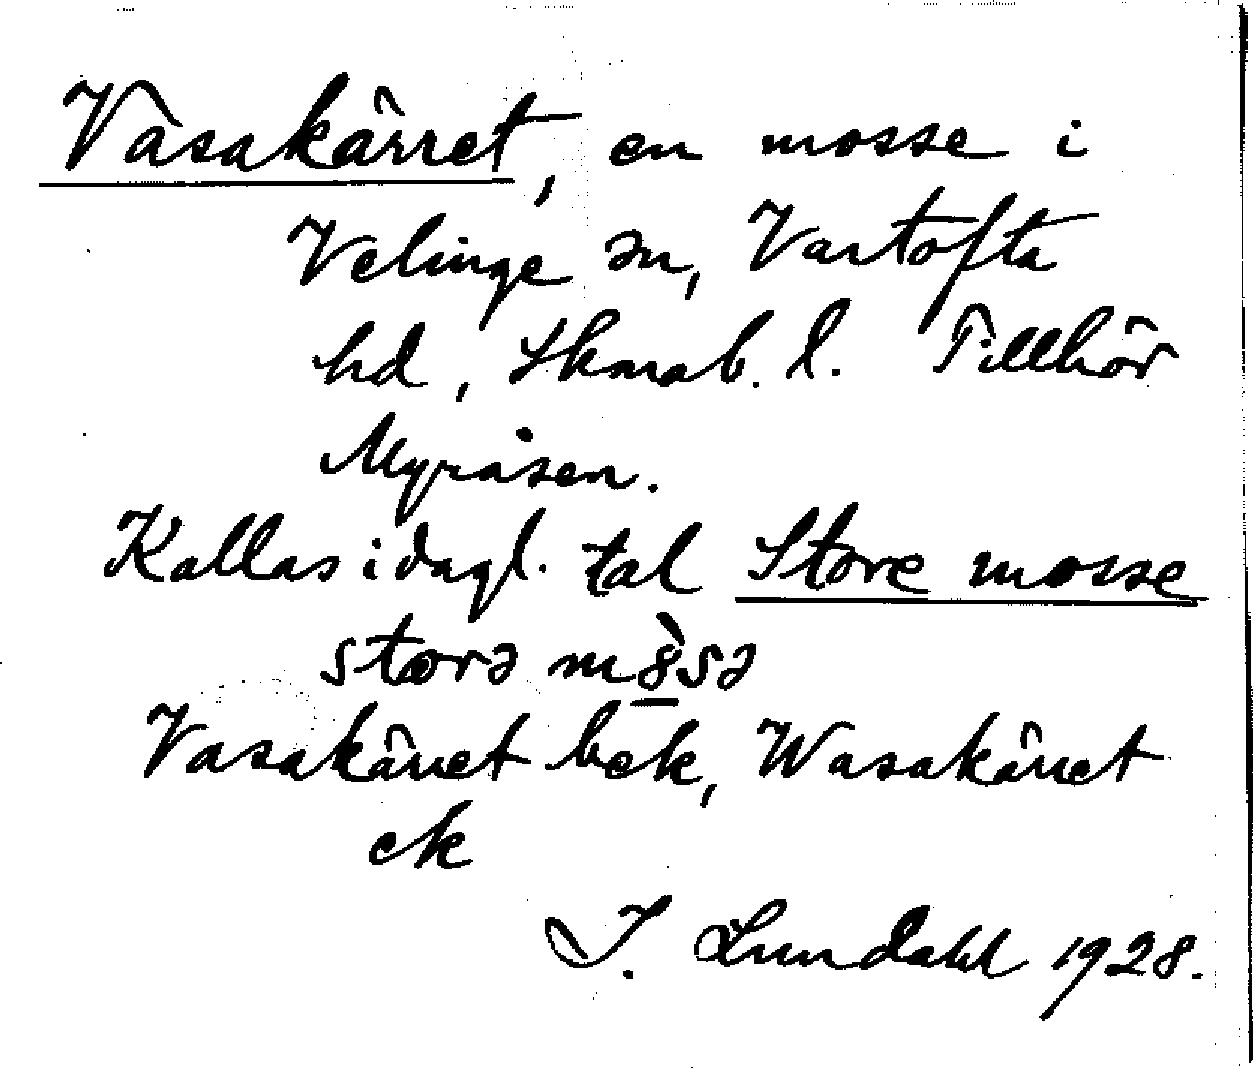 Vasakärret, en mosse i
Velinge sn, Vartofta
hd, Skarab. l. Tillhör
Myråsen.
Kallas i dagl. tal Store mosse
störə m
Vasakärret bek, Wasakärret
ek
I. Lundahl 1928.